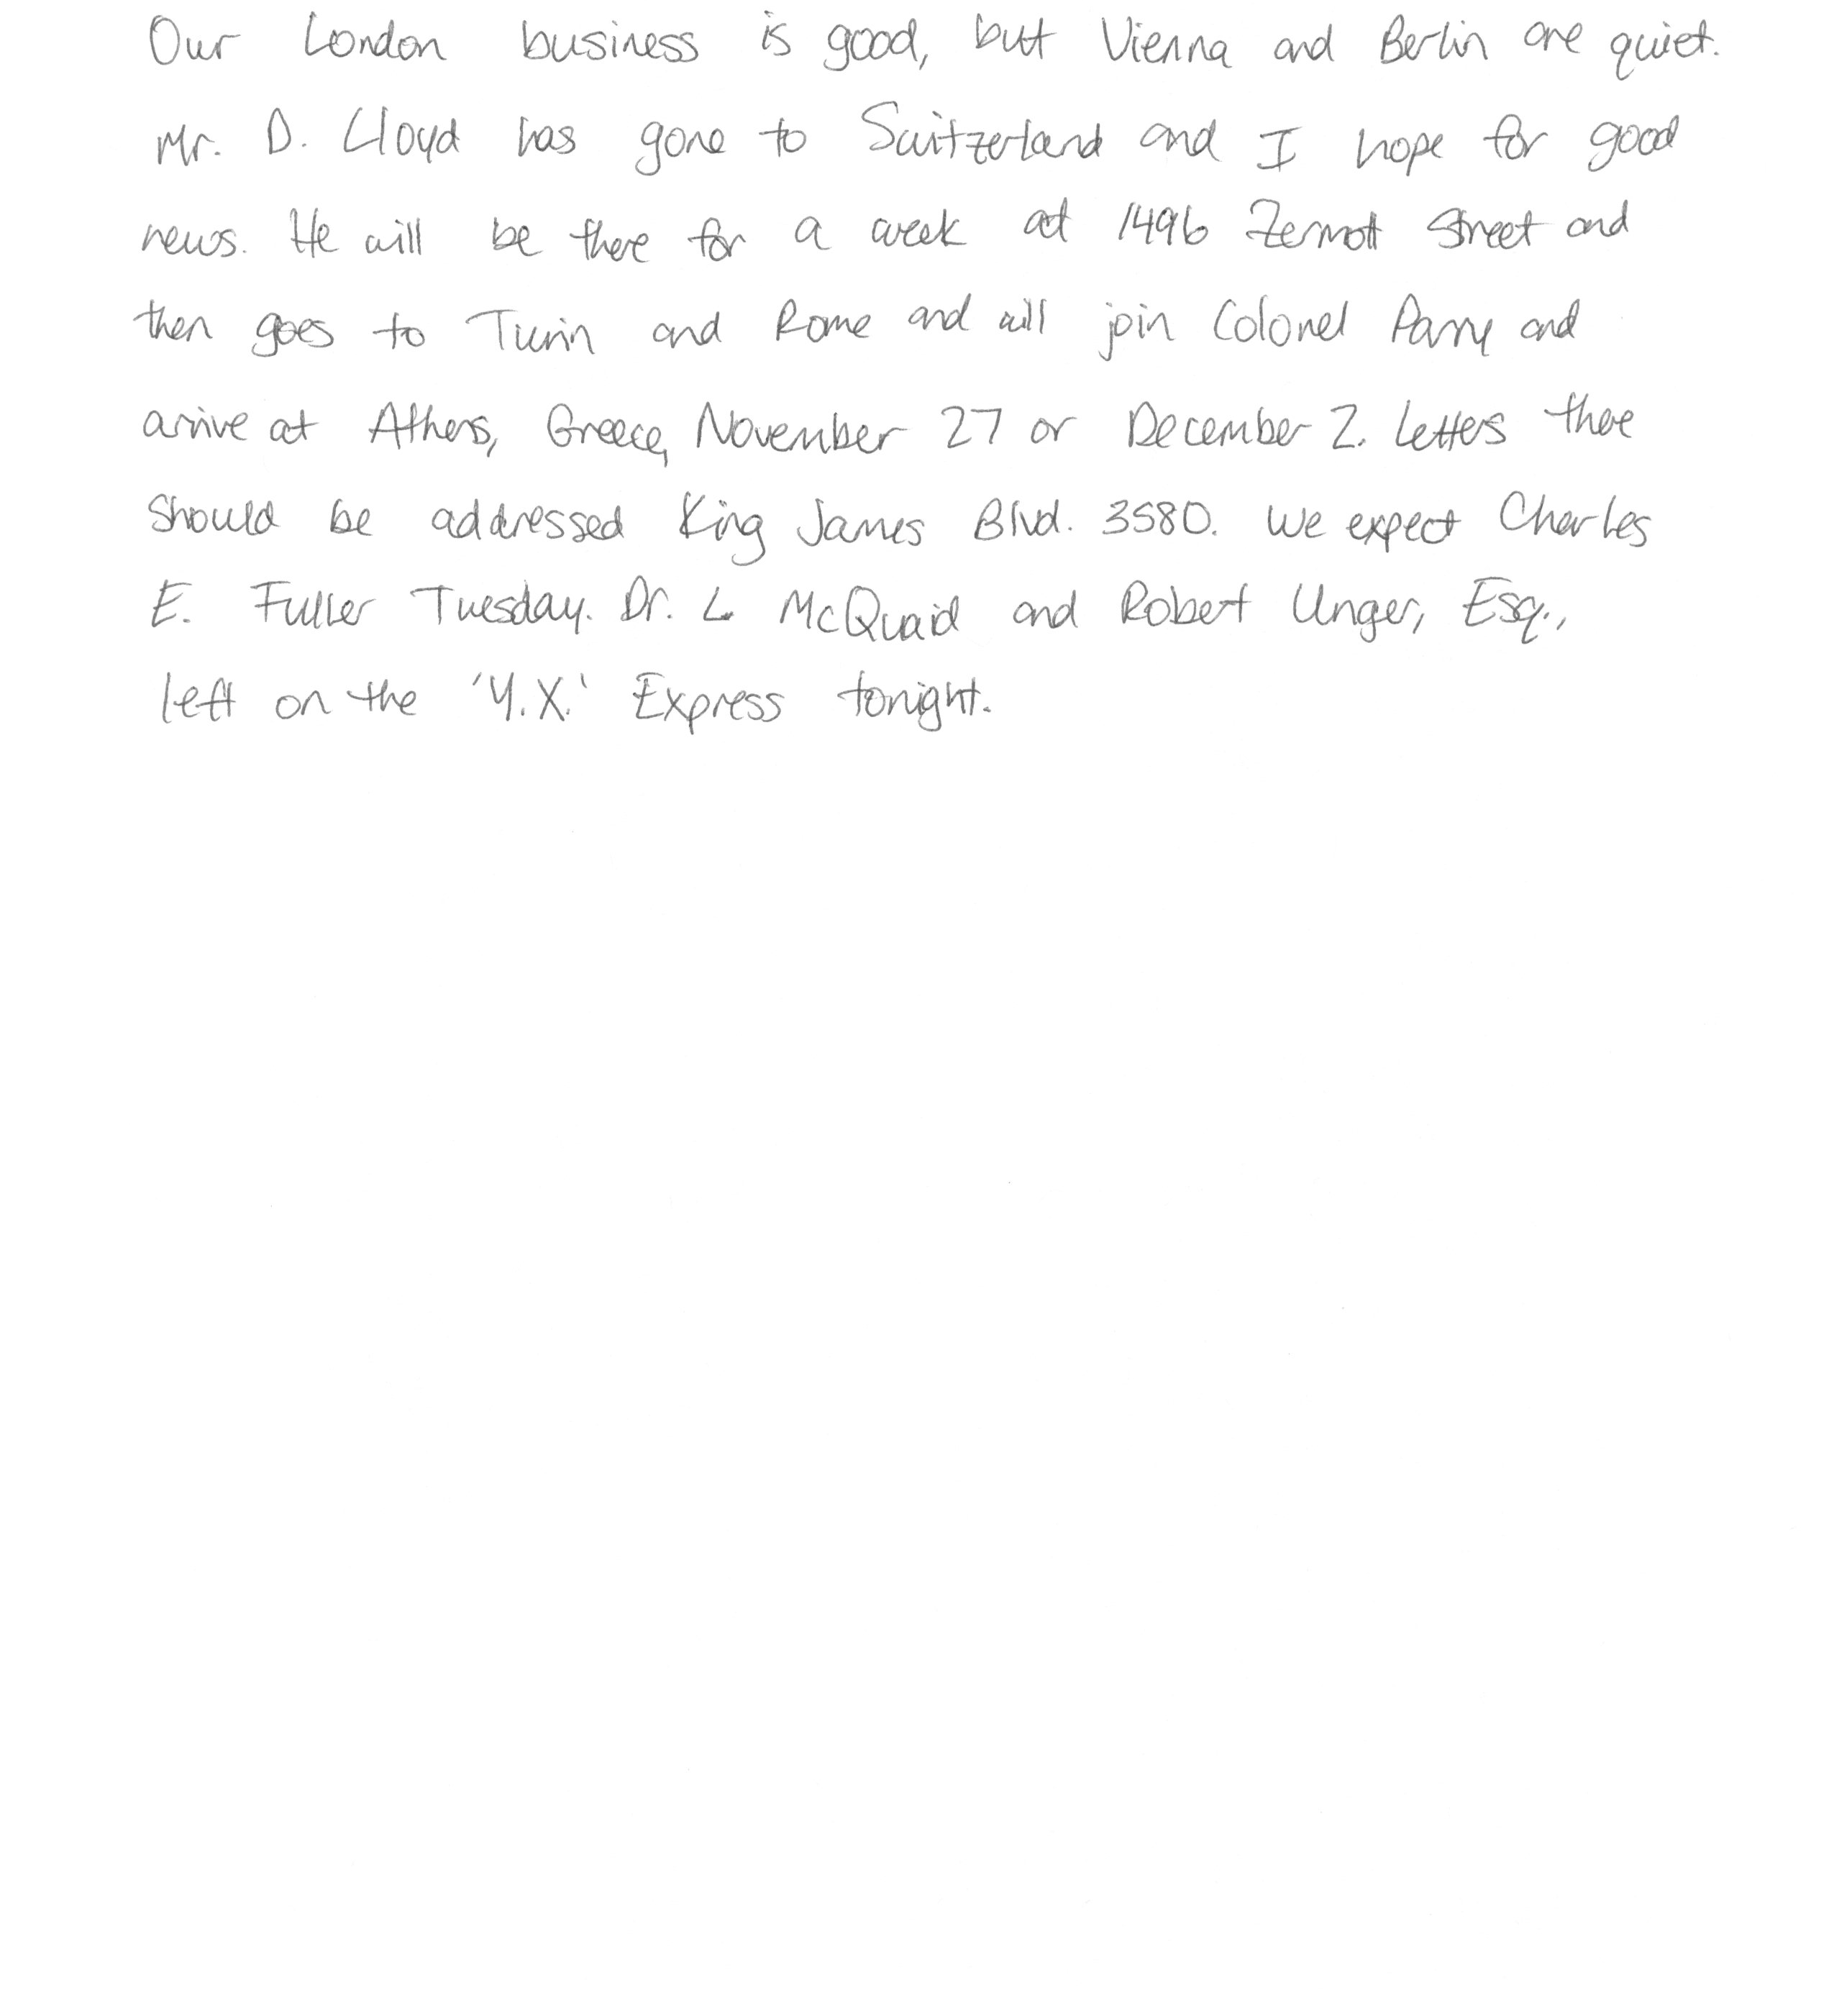 Our London business is good, but Vienna and Berlin are quiet.
Mr. D. Lloyd has gone to Switzerland and I hope for good
news. He will be there for a week at 1496 Zermott Street and
then goes to Turin and Rome and will join Colonel Parry and
arrive at Athens, Greece, November 27 or December 2. Letters there
should be addressed King James Blvd. 3580. We expect Charles
E. Fuller Tuesday. Dr. L McQuaid and Robert Unger, Esq.,
left on the 'Y.X.' Express tonight.